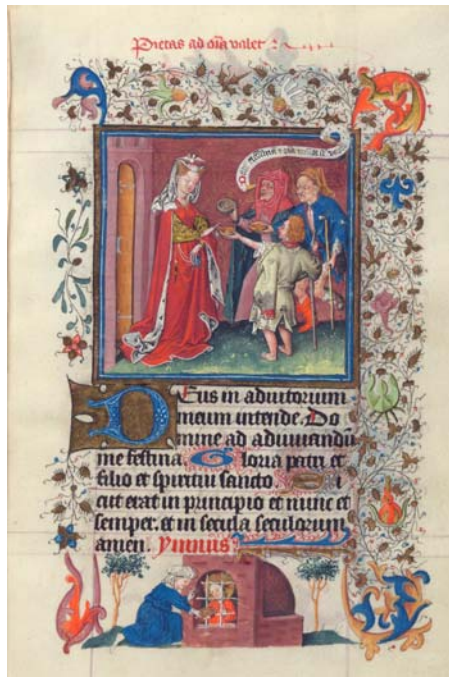 Pietas ad oīa valet
Deus in adiutorium
meum intende. Do
mine ad adiuuandū
me festina. Gloria patri et
filio et spiritui sancto. Si
cut erat in principio et nunc et
semper. et in secula seculorum
amen. Ymnus